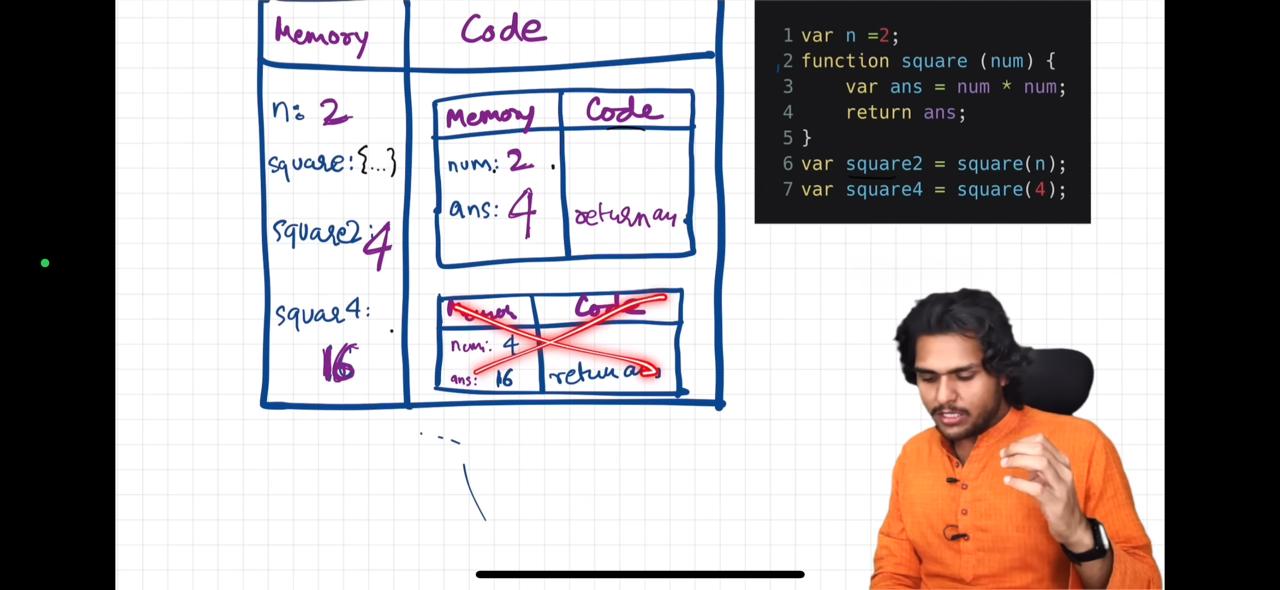 Memory Code
n: 2
square: {...}
square2: 4
squar4:
16
Memory Code
num: 2
ans: 4 return an
Code
num: 4
ans: 16 return ans
1 var n =2;
2 function square (num) {
3 var ans = num * num;
4 return ans;
5 }
6 var square2 = square(n);
7 var square4 = square(4);